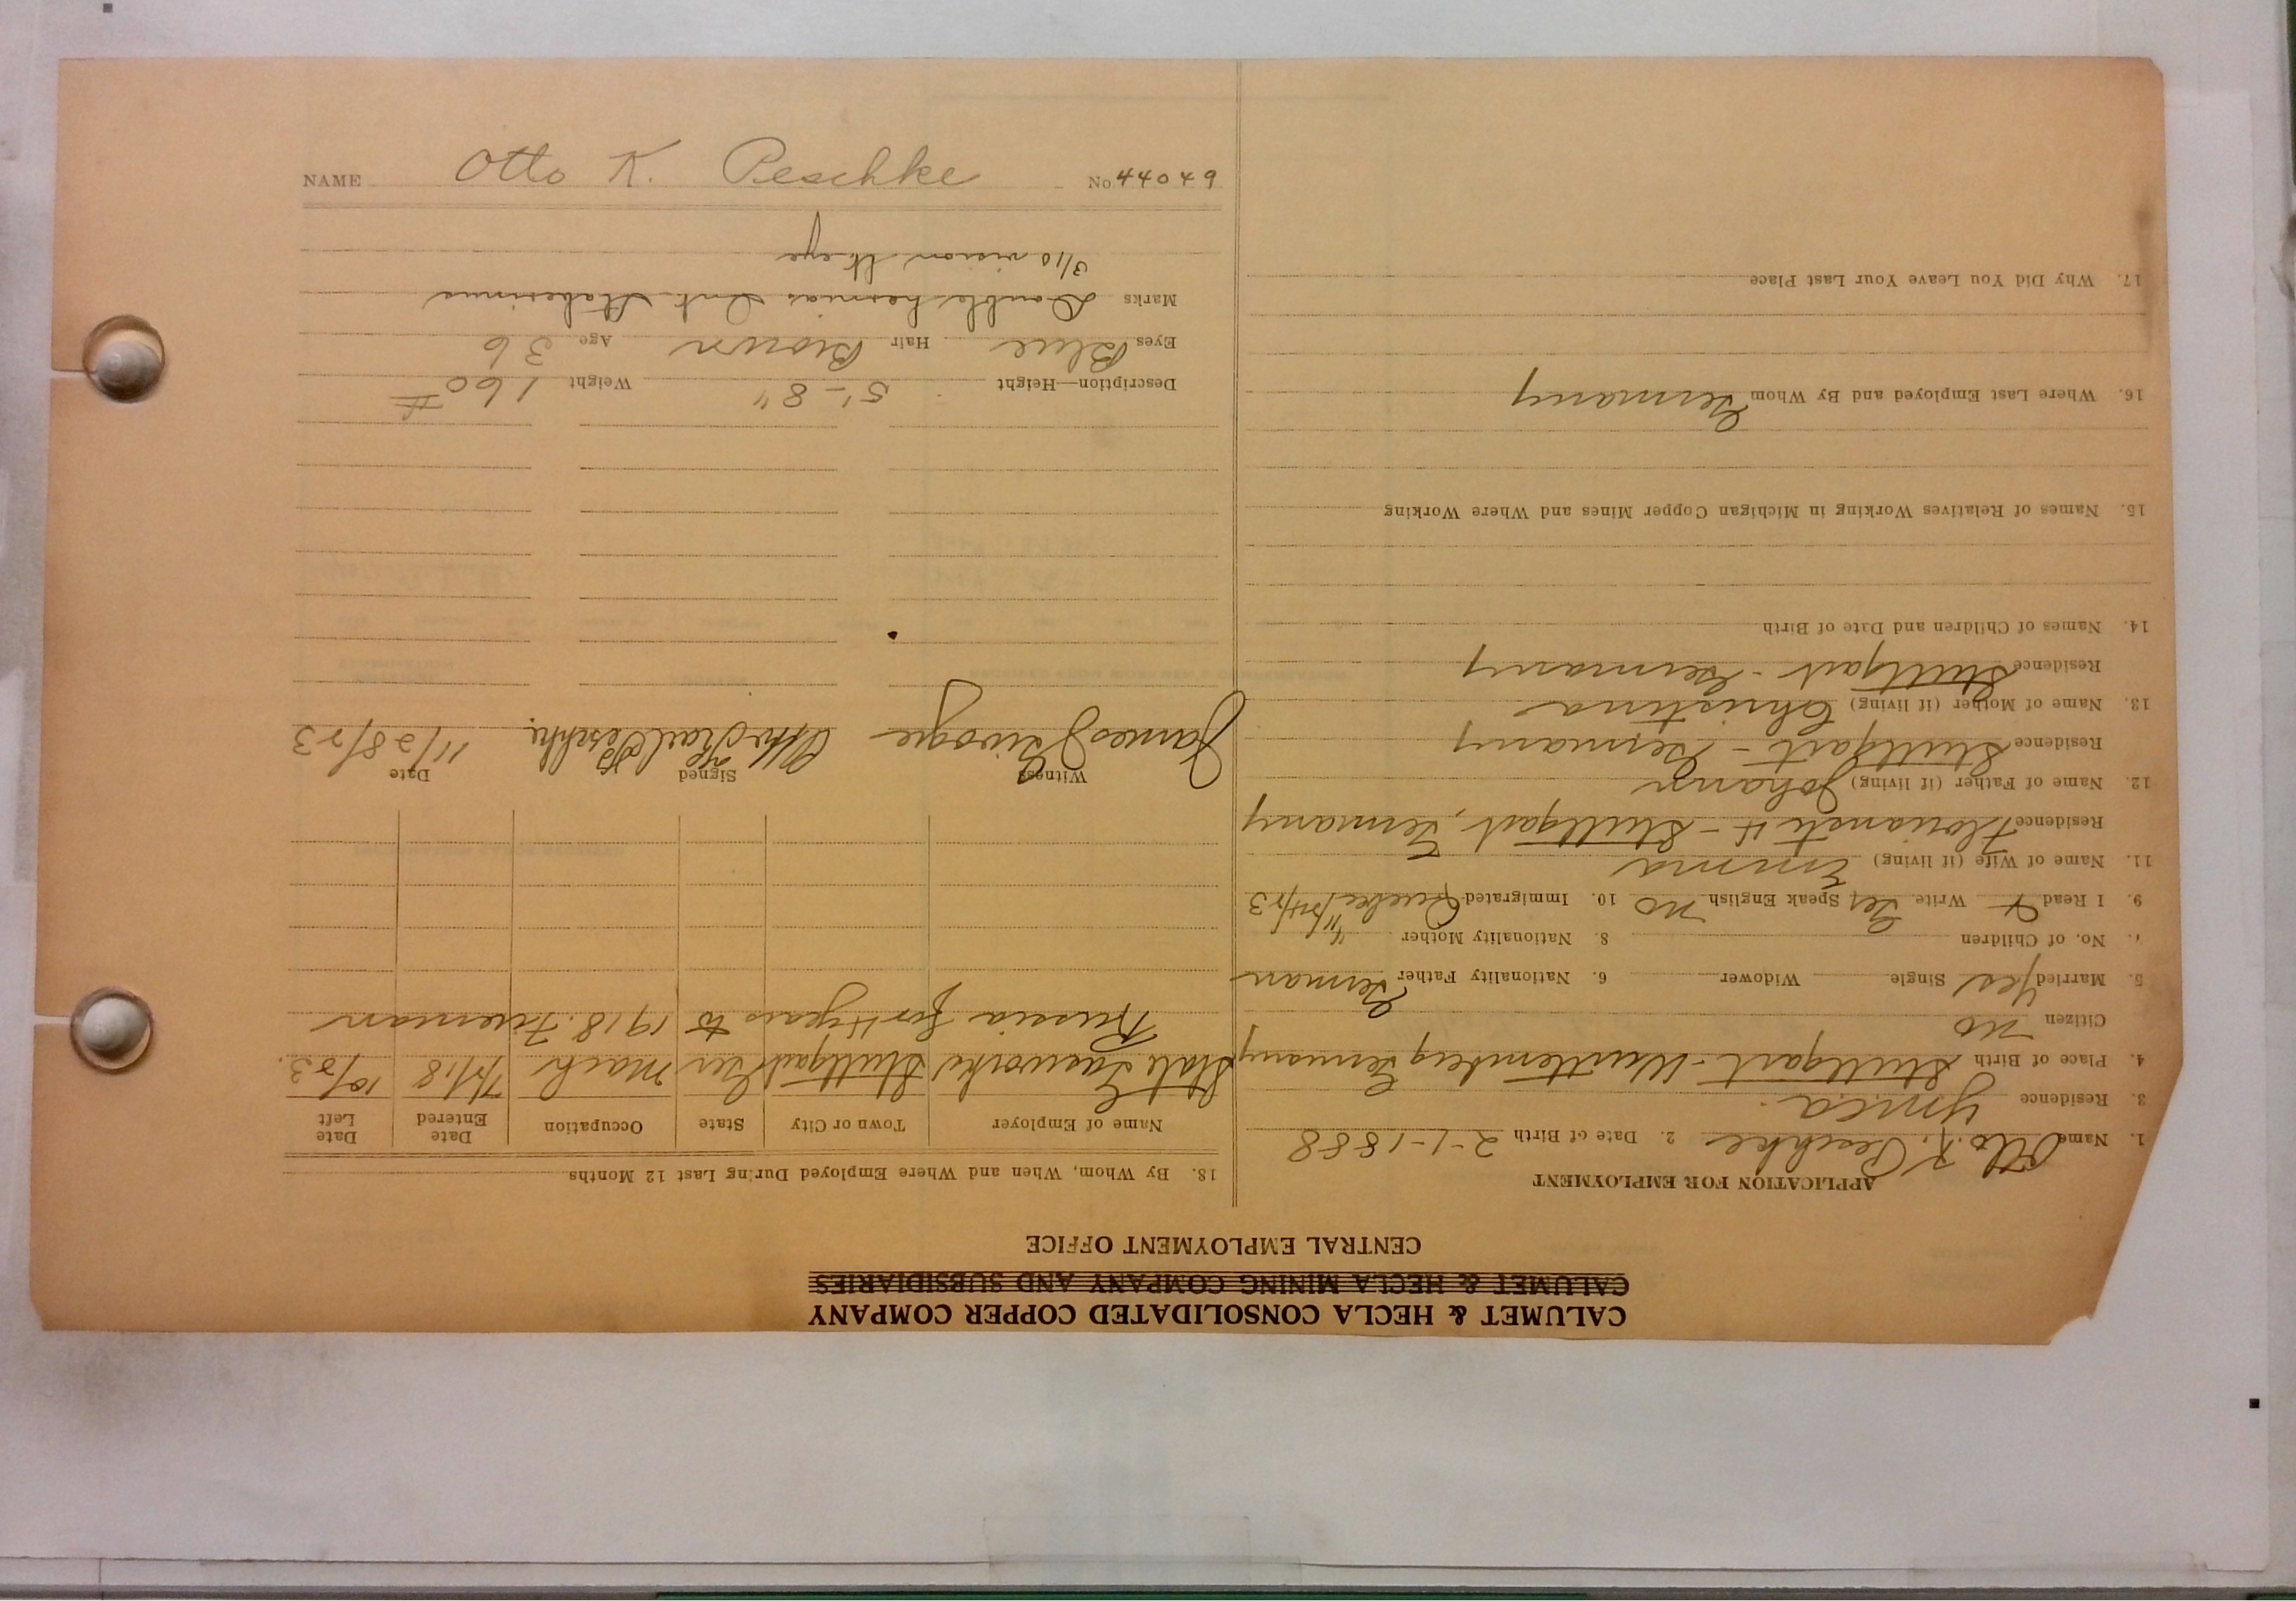 CALUMET & HECLA CONSOLIDATED COPPER COMPANY
CALUMET & HECLA MINING COMPANY AND SUBSIDIARIES
CENTRAL EMPLOYMENT OFFICE
APPLICATION FOR EMPLOYMENT
1. Name Otto K. Peschke 2. Date of Birth 2-1-1888
3. Residence Ymca.
4. Place of Birth Stuttgart - Wurttemberg Germany
Citizen no
5. Married Yes Single Widower 6. Nationality Father German
7. No. of Children 8. Nationality Mother "
9. I Read & Write Ger Speak English no 10. Immigrated Quebec
11. Name of Wife (if living) Emma
Residence 4 - Stuttgart, Germany
12. Name of Father (if living) Johann
Residence Stuttgart - Germany
13. Name of Mother (if living) Christina
Residence Stuttgart - Germany
14. Names of Children and Date of Birth
15. Names of Relatives Working in Michigan Copper Mines and Where Working
16. Where Last Employed and By Whom Germany
17. Why Did You Leave Your Last Place
18. By Whom, When and Where Employed During Last 12 Months
Name of Employer Town or City State Occupation Date Entered Date Left
State Gasworks Stuttgart Ger Mach 7/18 10/23.
Russia for 4 years to 1918. Fireman
Witness Signed Date
James Otto Karl Peschke. 11/28/23
Description—Height 5'-8" Weight 160 #
Eyes Blue Hair Brown Age 36
Marks Double hernias
3/10 vision lt eye
NAME Otto K. Peschke No 44049